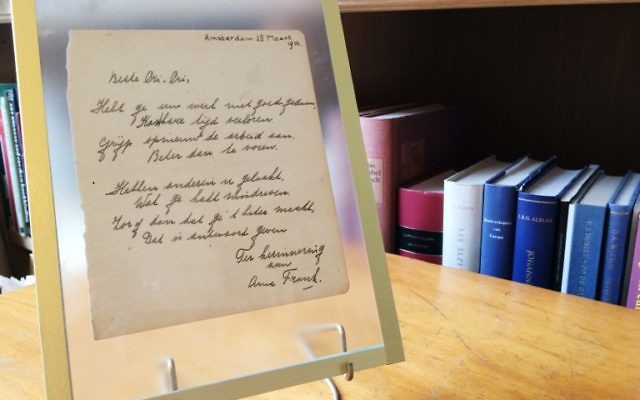 Amsterdam 28 Maart
Beste Cri-Cri,
Hebt ge uw werk niet goed gedaan,
Kostbare tijd verloren.
Grijp opnieuw de arbeid aan.
Beter dan te voren.
Hebben anderen u gelaakt,
Wat ge hadt misdreven.
Zorg dan dat ge 't beter maakt,
Dat is antwoord geven
Ter herinnering
aan
Anne Frank.
Boekverkopers
van
Europa
J.B.H. ALBLAS